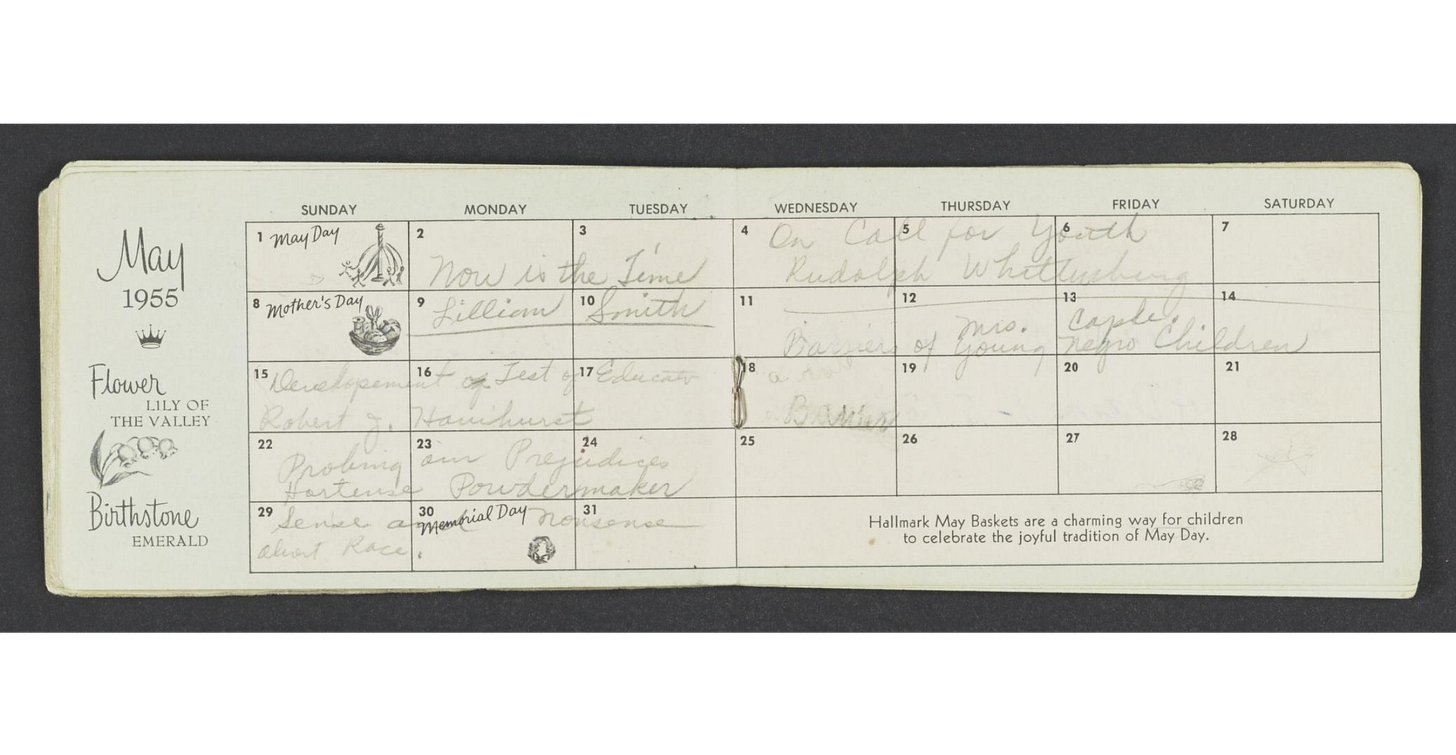 May
1955
Flower
LILY OF
THE VALLEY
Birthstone
EMERALD
SUNDAY MONDAY TUESDAY WEDNESDAY THURSDAY FRIDAY SATURDAY
1 May Day 2 3 4 5 6 7
On Call for Youth
Now is the Time
Rudolph
8 Mother's Day 9 10 11 12 13 14
Lillian Smith
Mrs.
Barriers of Young Negro Children
15 16 17 18 19 20 21
Developement of Test of Educato
Robert J. Havihurst
Barrier
22 23 24 25 26 27 28
Probing our Prejudices
Hortense Powdermaker
29 30 Memorial Day 31
Sense and Nonsense
about Race.
Hallmark May Baskets are a charming way for children
to celebrate the joyful tradition of May Day.